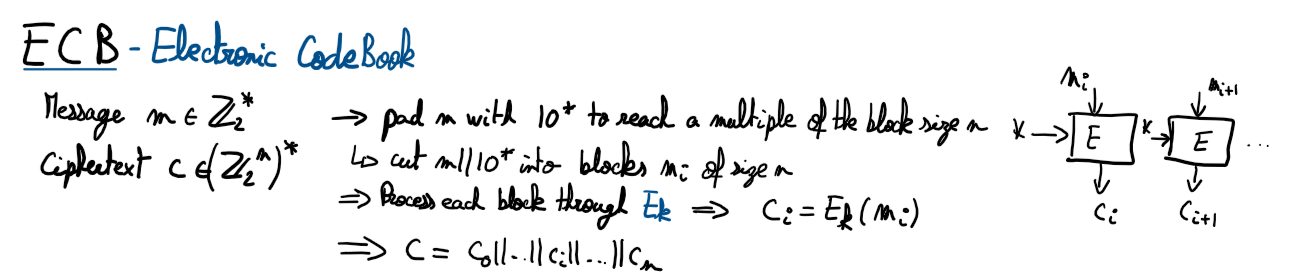 ECB - Electronic CodeBook
Message m ∈ ℤ₂* → pad m with 10* to reach a multiple of the block size n
Ciphertext c ∈ (ℤ₂ⁿ)* ↳ cut m||10* into blocks mᵢ of size n
⇒ Process each block through Eₖ ⇒ Cᵢ = Eₖ(mᵢ)
⇒ C = C₀||...||cᵢ||...||Cₙ
mᵢ mᵢ₊₁
K → E K → E ...
Cᵢ Cᵢ₊₁